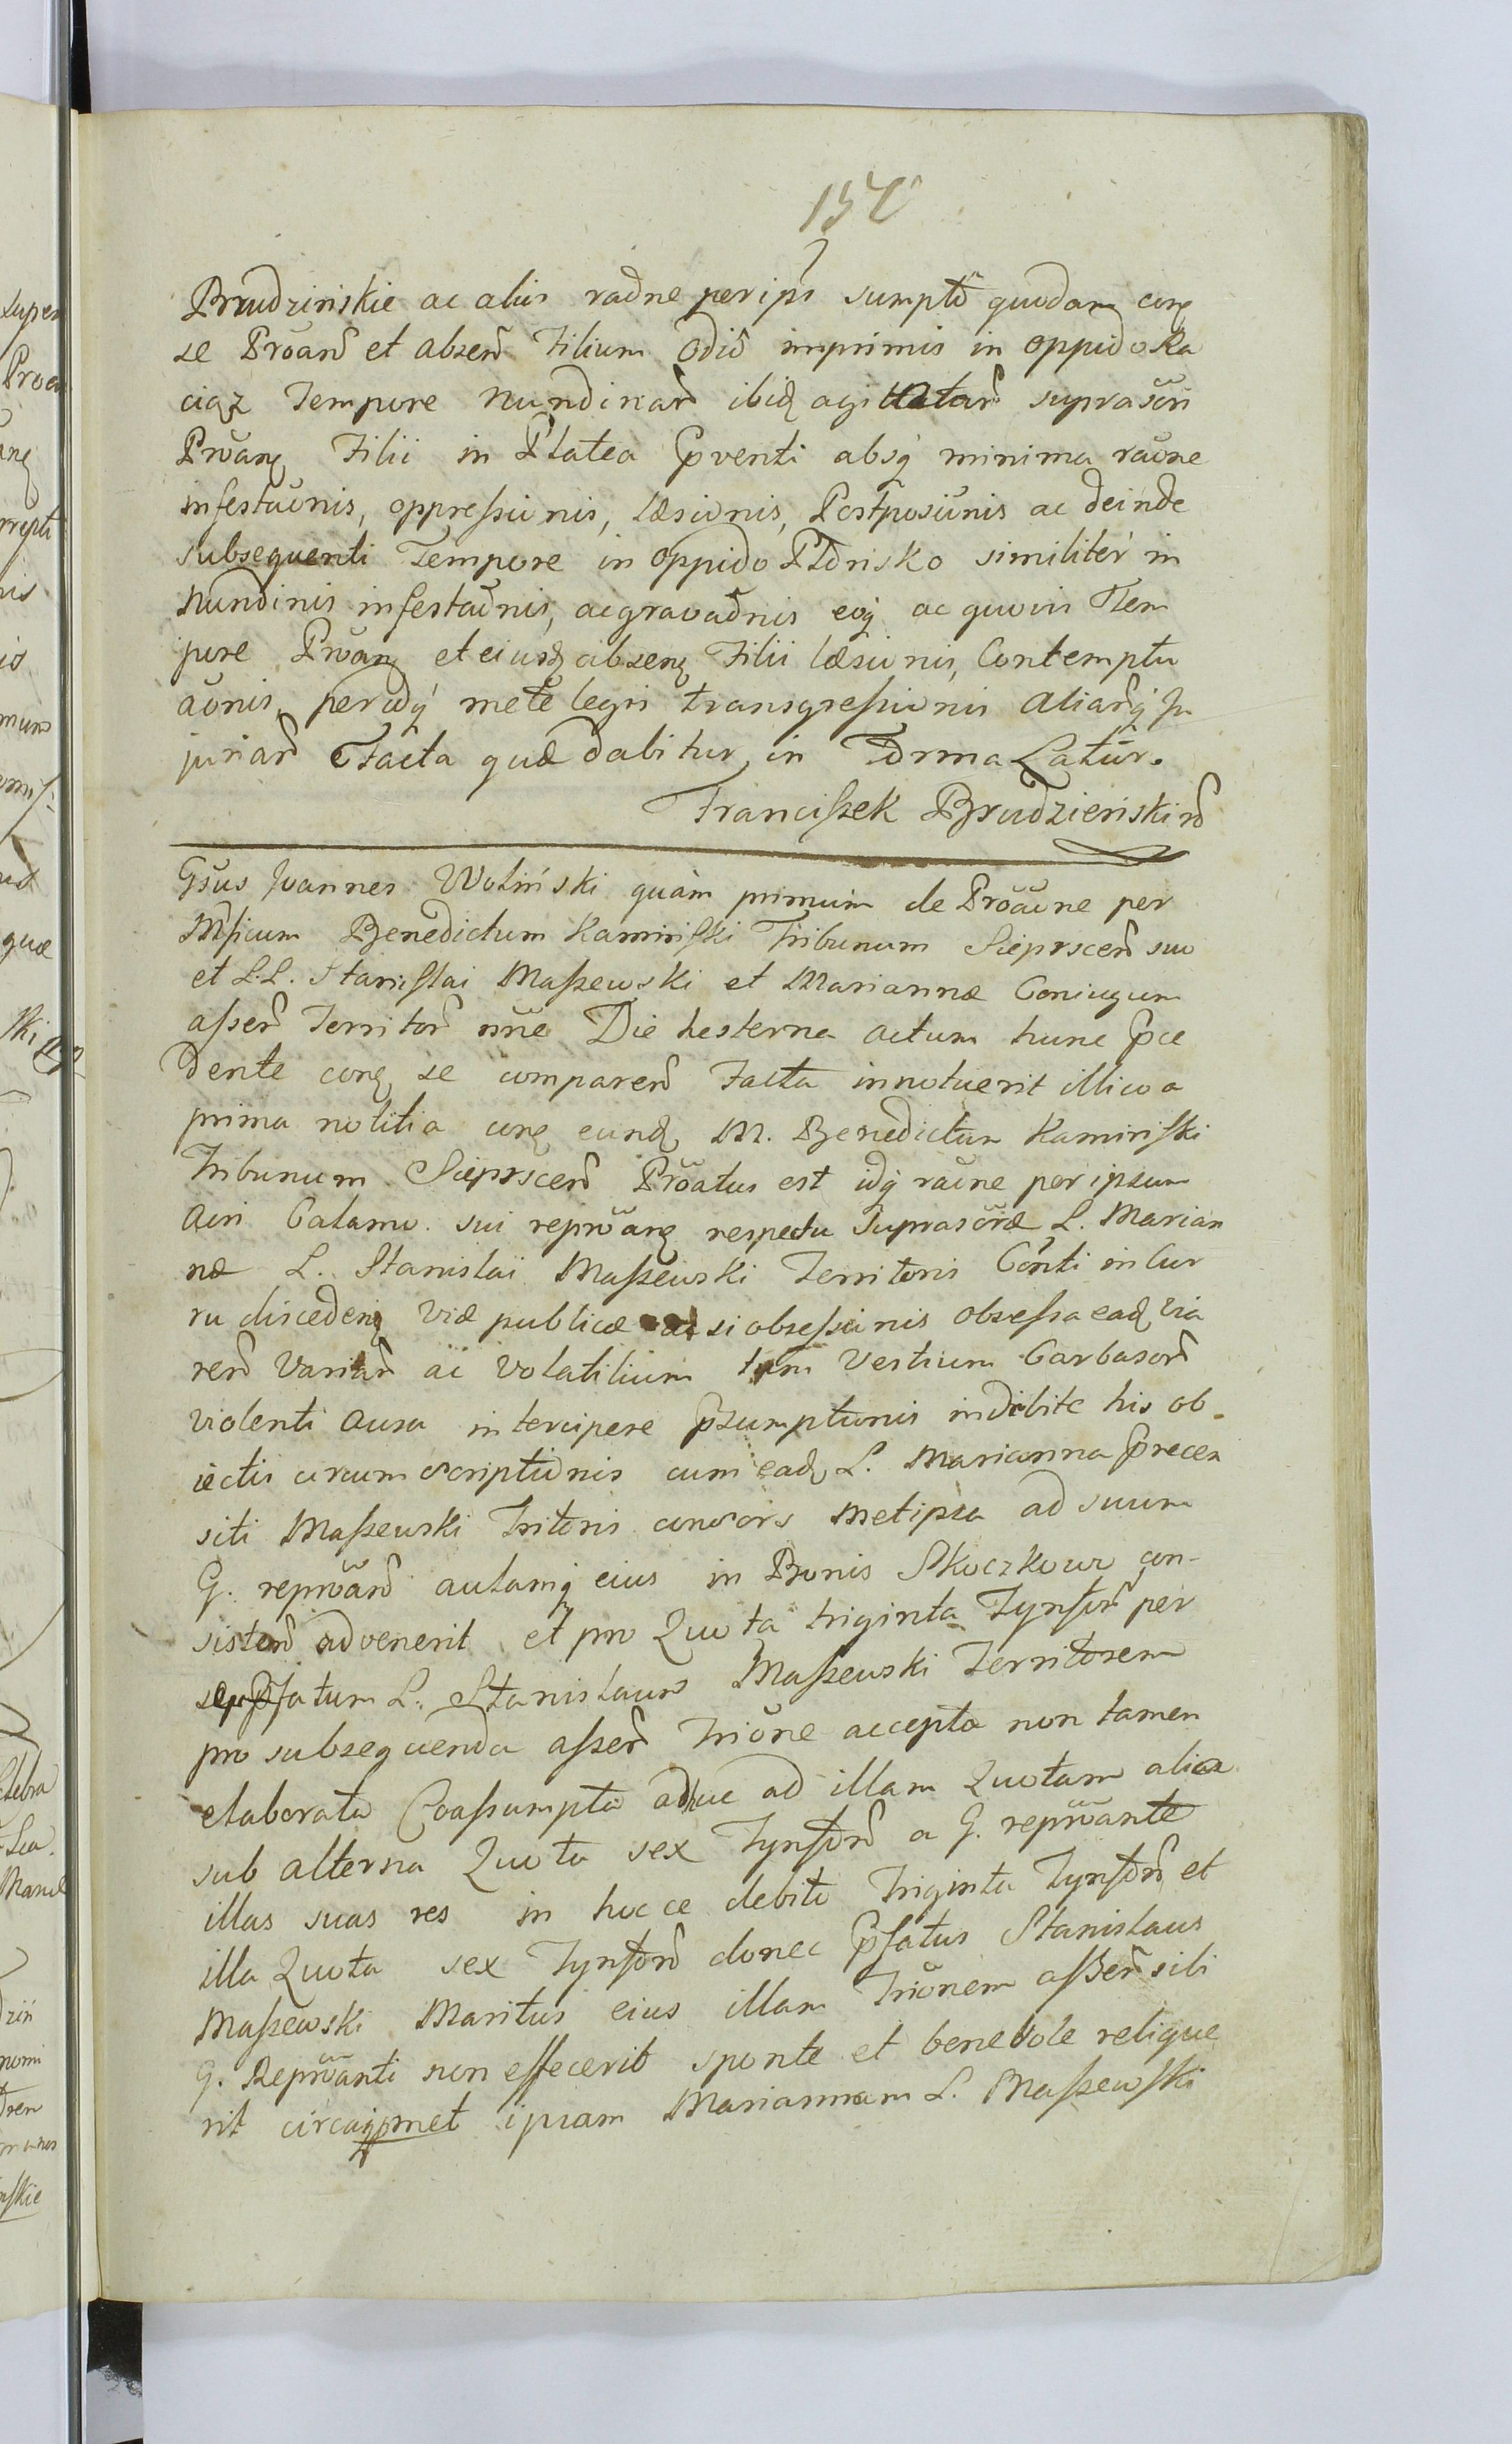 154
Brudzinskie ac aliis raõne per ipš sumpto quodam corȝ
se Proãnð et absenð Filium odio imprimis in oppido Ra
ciąz Tempore Nundinarð ibidȝ agitatarð suprascri
Proãnȝ Filii in Platea Pventi absq minima raõne
infestaõnis, oppressionis, læsionis, Postposiõnis ac deinde
subsequenti Tempore in oppido Płonsko similiter in
Nundinis infestaõnis, ac gravaõnis eoq ac quovis Tem
pore Proãnȝ et eiusdȝ absenȝ Filii læsionis, Contemptu
aõnis, per idq metæ legis transgressionis aliarðq In
juriarð Facta quæ dabitur in Forma Latur.
Franciszek Brudzieński rð
Gsus Joannes Woliński quàm primum de Proãõne per
Mficum Benedictum Kamiński Tribunum Sieprscenð suo
et L.L. Stanislai Maszewski et Mariannæ Coniugum
asserð Territorð nne Die hesterna actum hunc Pce
dente corȝ se comparenð Facta innotuerit illico a
prima notitia corȝ eundȝ M. Benedictum Kamiński
Tribunum Sieprscenð Proãtus est idq raõne per ipsum
Acti Calamo sui reproãnȝ respectu suprascriptæ L. Marian
næ L. Stanislai Maszewski Territoris Consti in Cur
ru discedenȝ viæ publicæ ac si obsessionis obsessa eadȝ via
rerð variarð ac volatilium tum vestium Carbasorð
violenti ausu intercipere Psumptionis indebite his ob
iectis circumscriptionis cum eadȝ L. Marianna Precen
siti Maszewski Tritoris consors metipsa ad suum
G. reproãnð aulamq eius in Bonis Skoczkowo con-
sistenð advenerit et pro Quota triginta Tynforð per
Pfatum L. Stanislaum Maszewski Territorem
pro subsequenda asserð Triõne accepta non tamen
elaborata Coassumpta adhuc ad illam Quotam alia
sub alterna Quota sex Tynforð a G. reproãnte
illas suas res in hocce debito Triginta Tynforð et
illa Quota sex Tynforð donec Pfatus Stanislaus
Maszewski Maritus eius illam Triõnem asserð sibi
G. Reproãnti non effecerit sponte et benevole relique
rit circaq met ipsam Mariannam L. Maszewski